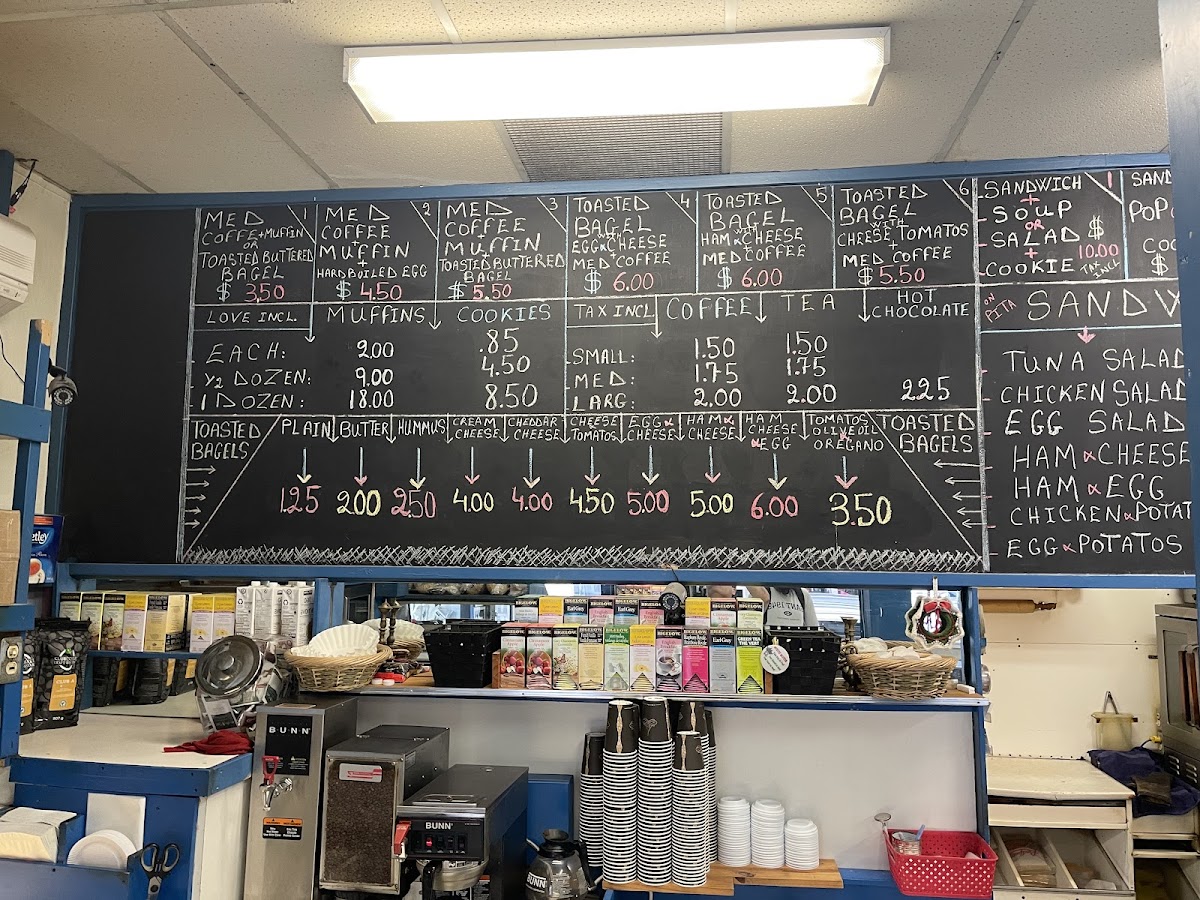 MED 1
COFFE + MUFFIN
OR
TOASTED BUTTERED
BAGEL
$ 3,50
MED 2
COFFEE
+
MUFFIN
+
HARD BOILED EGG
$ 4.50
MED 3
COFFEE
+
MUFFIN
+
TOASTED BUTTERED
BAGEL
$ 5.50
TOASTED 4
BAGEL
WITH
EGG & CHEESE
+
MED COFFEE
$ 6.00
TOASTED 5
BAGEL
WITH
HAM & CHEESE
+
MED COFFEE
$ 6.00
TOASTED 6
BAGEL
WITH
CHEESE & TOMATOS
+
MED COFFEE
$ 5.50
SANDWICH 1
+
SOUP
OR
SALAD $
+ 10.00
COOKIE TAX INCL
SAND
POP
COO
$
LOVE INCL. MUFFINS COOKIES
EACH: 2.00 .85
1/2 DOZEN: 9.00 4.50
1 DOZEN: 18.00 8.50
TAX INCL COFFEE TEA HOT
CHOCOLATE
SMALL: 1.50 1.50
MED: 1.75 1.75
LARG: 2.00 2.00 2.25
ON
PITA
SANDW
TUNA SALAD
CHICKEN SALAD
EGG SALAD
HAM & CHEESE
HAM & EGG
CHICKEN & POTAT
EGG & POTATOS
TOASTED
BAGELS
PLAIN
1.25
BUTTER
2.00
HUMMUS
2.50
CREAM
CHEESE
4.00
CHEDDAR
CHEESE
4.00
CHEESE
TOMATOS
4.50
EGG &
CHEESE
5.00
HAM &
CHEESE
5.00
HAM
CHEESE
& EGG
6.00
TOMATOS
OLIVE OIL
OREGANO
3.50
TOASTED
BAGELS
etley
BIGELOW
Earl Grey
BIGELOW
Earl Grey
BUNN
BUNN
BUNN